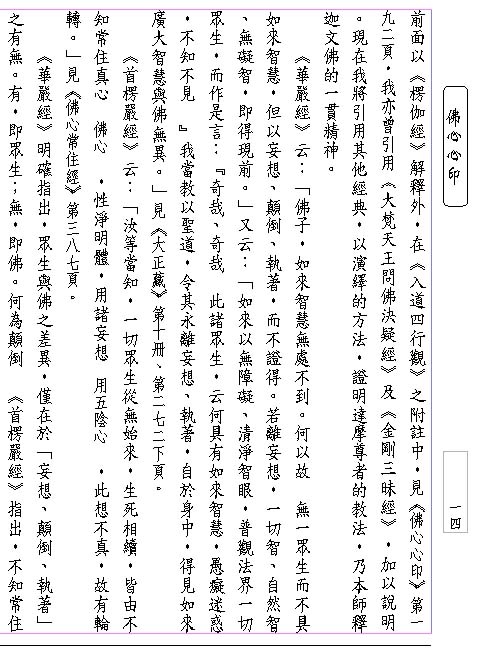 佛心心印
一四
前面以《楞伽經》解釋外，在《入道四行觀》之附註中，見《佛心心印》第一
九二頁，我亦曾引用《大梵天王問佛決疑經》及《金剛三昧經》，加以說明
。現在我將引用其他經典，以演繹的方法，證明達摩尊者的教法，乃本師釋
迦文佛的一貫精神。
《華嚴經》云：「佛子，如來智慧無處不到。何以故　無一眾生而不具
如來智慧，但以妄想、顛倒、執著，而不證得。若離妄想，一切智、自然智
、無礙智，即得現前。」又云：「如來以無障礙、清淨智眼，普觀法界一切
眾生，而作是言：『奇哉、奇哉　此諸眾生，云何具有如來智慧，愚癡迷惑
，不知不見　』我當教以聖道，令其永離妄想、執著，自於身中，得見如來
廣大智慧與佛無異。」見《大正藏》第十冊、第二七二下頁。
《首楞嚴經》云：「汝等當知，一切眾生從無始來，生死相續，皆由不
知常住真心　佛心　，性淨明體，用諸妄想　用五陰心　，此想不真，故有輪
轉。」見《佛心常住經》第三八七頁。
《華嚴經》明確指出，眾生與佛之差異，僅在於「妄想、顛倒、執著」
之有無。有，即眾生；無，即佛。何為顛倒　《首楞嚴經》指出，不知常住